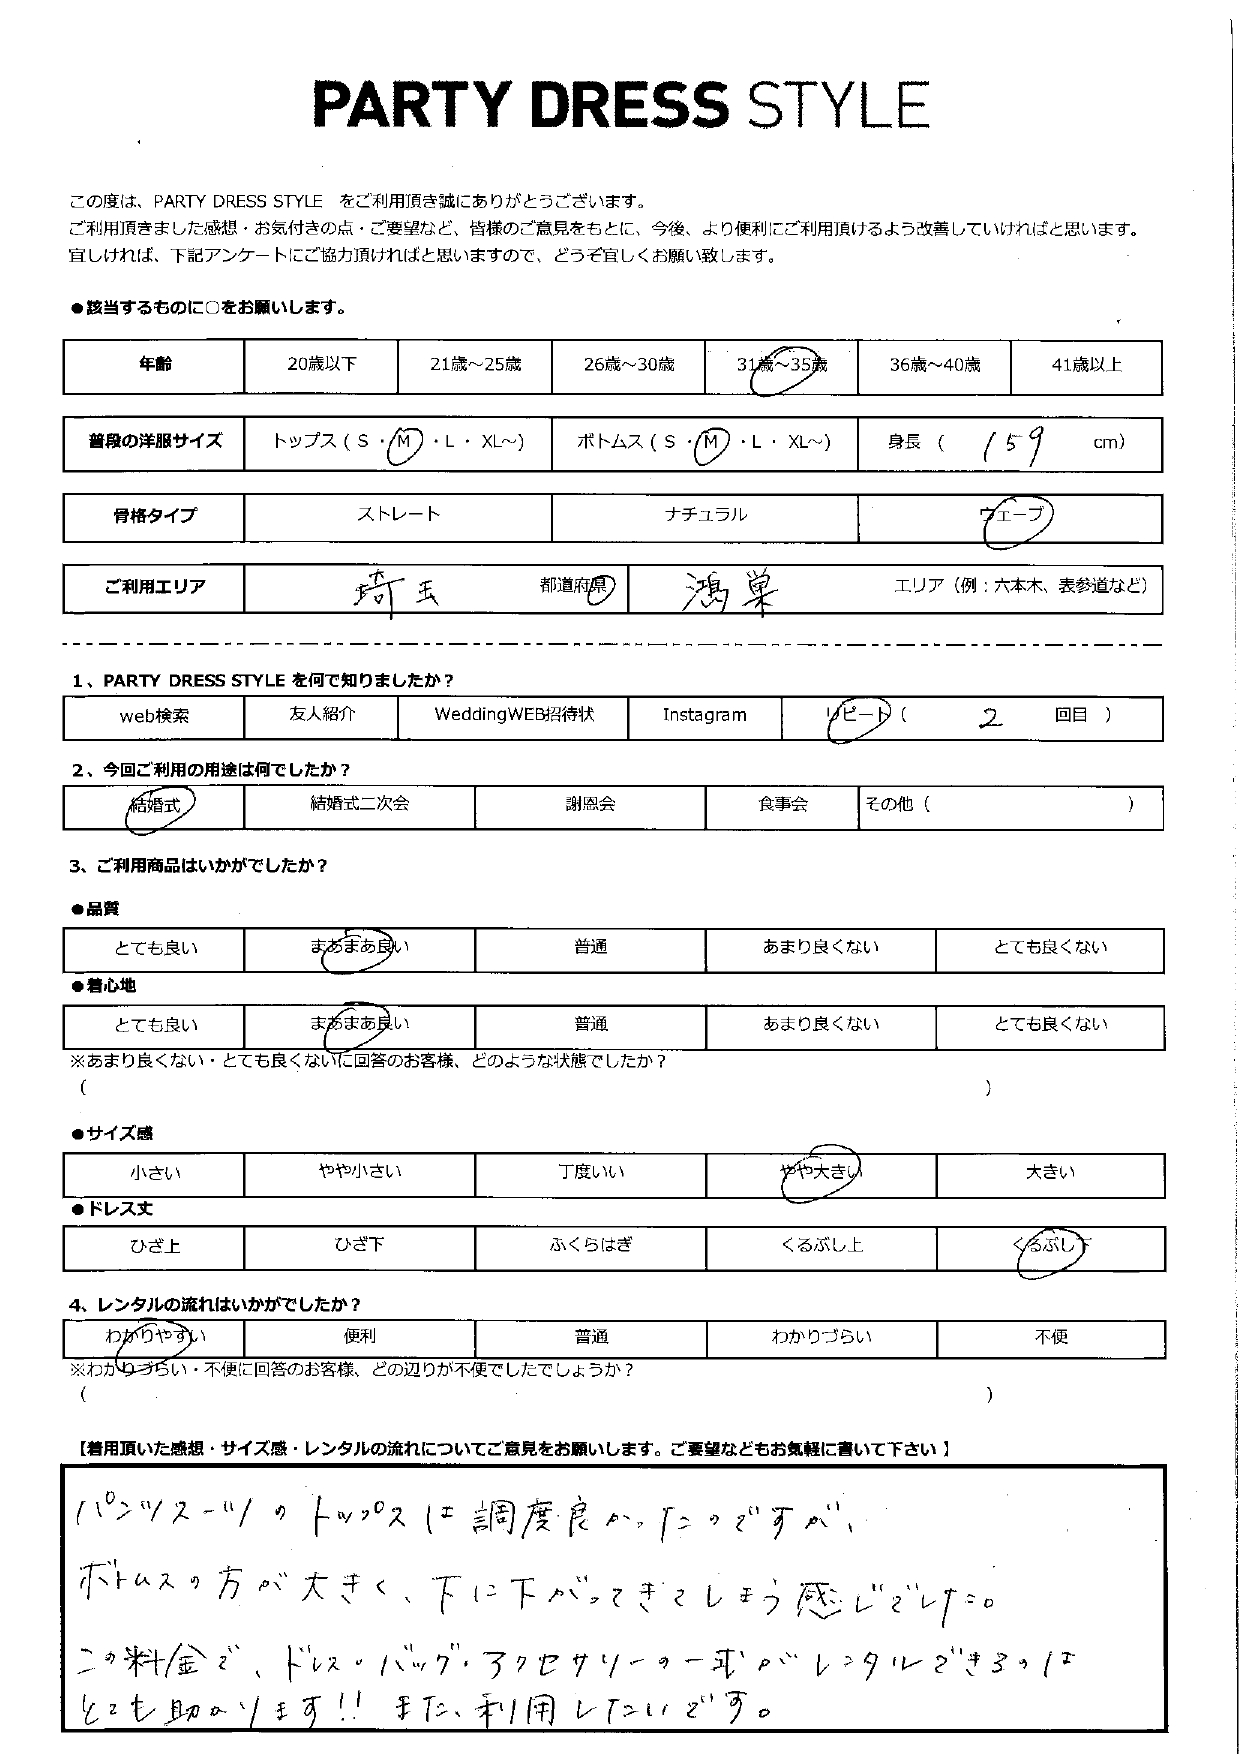 PARTY DRESS STYLE
この度は、PARTY DRESS STYLE をご利用頂き誠にありがとうございます。
ご利用頂きました感想・お気付きの点・ご要望など、皆様のご意見をもとに、今後、より便利にご利用頂けるよう改善していければと思います。
宜しければ、下記アンケートにご協力頂ければと思いますので、どうぞ宜しくお願い致します。
●該当するものに○をお願いします。
年齢 20歳以下 21歳～25歳 26歳～30歳 31歳～35歳 36歳～40歳 41歳以上
普段の洋服サイズ トップス ( S ・ M ・ L ・ XL～) ボトムス ( S ・ M ・ L ・ XL～) 身長 ( 159 cm)
骨格タイプ ストレート ナチュラル ウェーブ
ご利用エリア 埼玉 都道府県 鴻巣 エリア（例：六本木、表参道など）
1、PARTY DRESS STYLE を何で知りましたか？
web検索 友人紹介 WeddingWEB招待状 Instagram リピート ( 2 回目 )
2、今回ご利用の用途は何でしたか？
結婚式 結婚式二次会 謝恩会 食事会 その他 ( )
3、ご利用商品はいかがでしたか？
●品質
とても良い まあまあ良い 普通 あまり良くない とても良くない
●着心地
とても良い まあまあ良い 普通 あまり良くない とても良くない
※あまり良くない・とても良くないに回答のお客様、どのような状態でしたか？
( )
●サイズ感
小さい やや小さい 丁度いい やや大きい 大きい
●ドレス丈
ひざ上 ひざ下 ふくらはぎ くるぶし上 くるぶし下
4、レンタルの流れはいかがでしたか？
わかりやすい 便利 普通 わかりづらい 不便
※わかりづらい・不便に回答のお客様、どの辺りが不便でしたでしょうか？
( )
【着用頂いた感想・サイズ感・レンタルの流れについてご意見をお願いします。ご要望などもお気軽に書いて下さい】
パンツスーツのトップスは調度良かったのですが、
ボトムスの方が大きく、下に下がってきてしまう感じでした。
この料金で、ドレス・バッグ・アクセサリーの一式がレンタルできるのは
とても助かります!! また、利用したいです。